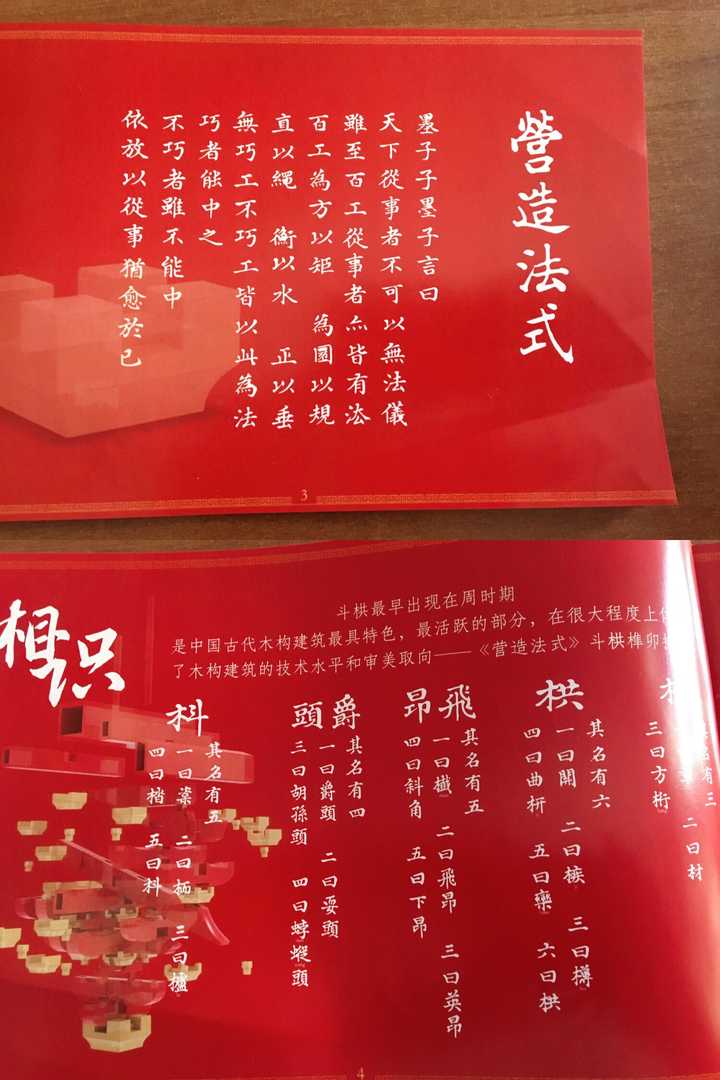 營造法式
墨子子墨子言曰
天下從事者不可以無法儀
雖至百工從事者亦皆有法
百工為方以矩 為圓以規
直以繩 衡以水 正以垂
無巧工不巧工皆以此為法
巧者能中之
不巧者雖不能中
依放以從事猶愈於已
3
相识
斗栱最早出现在周时期
是中国古代木构建筑最具特色，最活跃的部分，在很大程度上
了木构建筑的技术水平和审美取向——《营造法式》斗栱榫卯
其名有三
二曰材
三曰方桁
栱
其名有六
一曰開 二曰槉 三曰欂
四曰曲枅 五曰欒 六曰栱
飛昂
其名有五
一曰櫼 二曰飛昂 三曰英昂
四曰斜角 五曰下昂
爵頭
其名有四
一曰爵頭 二曰耍頭
三曰胡孫頭 四曰蜉蝬頭
枓
其名有五
一曰楶 二曰栭 三曰櫨
四曰楷 五曰枓
4